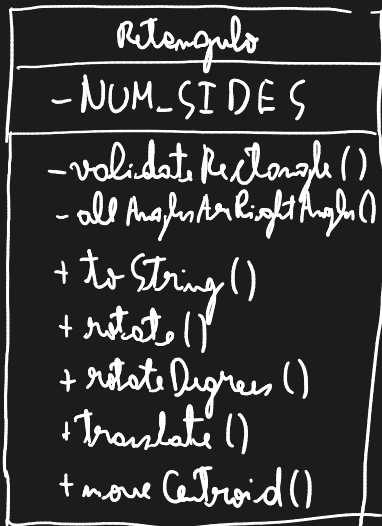 Retangulo
- NUM_SIDES
- validateRectangle()
- allAnglesAreRightAngles()
+ toString()
+ rotate()
+ rotateDegrees()
+ translate()
+ moveCentroid()